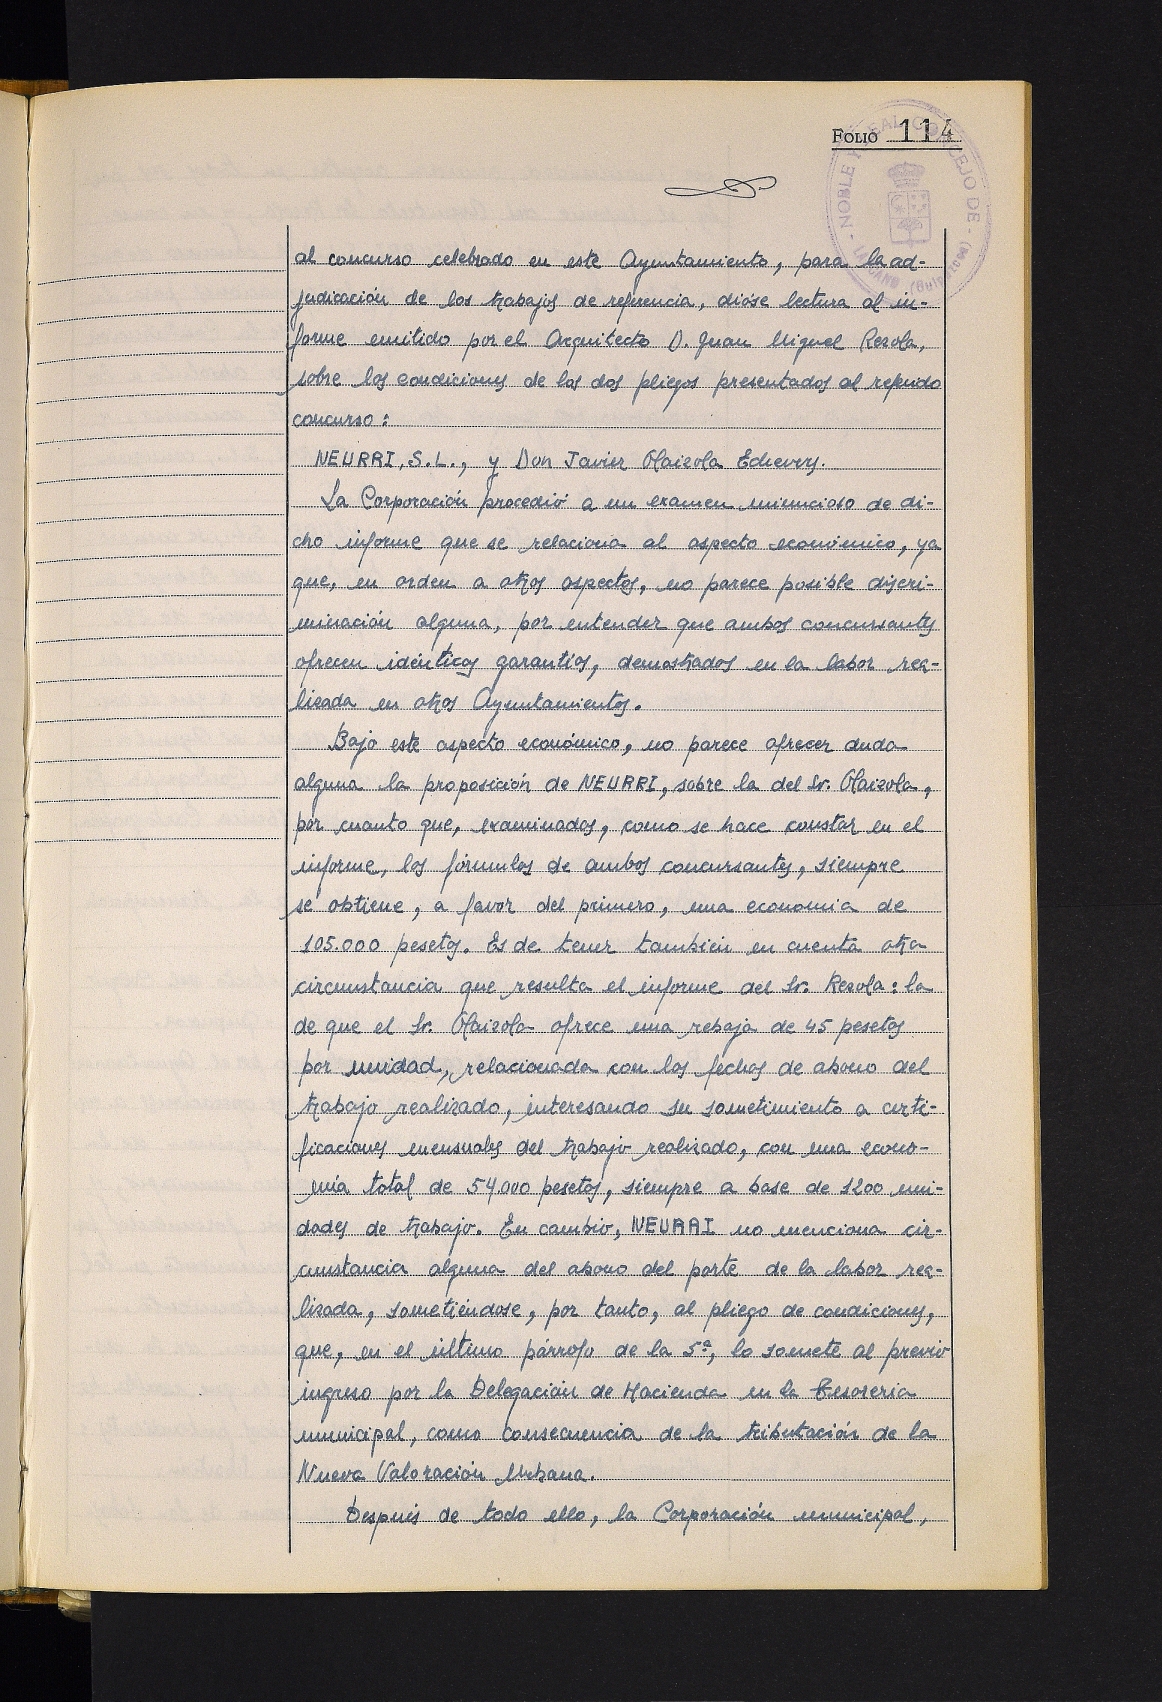 FOLIO 114
NOBLE Y LEAL CONCEJO DE
al concurso celebrado en este Ayuntamiento, para la ad-
judicación de los trabajos de referencia, dióse lectura al in-
forme emitido por el Arquitecto D. Juan Miguel Rezola,
sobre las condiciones de los dos pliegos presentados al referido
concurso:
NEURRI, S.L., y Don Javier Olaizola Echevery.
La Corporación procedió a un examen minucioso de di-
cho informe que se relaciona al aspecto económico, ya
que, en orden a otros aspectos, no parece posible discri-
minación alguna, por entender que ambos concursantes
ofrecen idénticas garantías, demostradas en la labor rea-
lizada en otros Ayuntamientos.
Bajo este aspecto económico, no parece ofrecer duda
alguna la proposición de NEURRI, sobre la del Sr. Olaizola,
por cuanto que, examinadas, como se hace constar en el
informe, las fórmulas de ambos concursantes, siempre
se obtiene, a favor del primero, una economia de
105.000 pesetas. Es de tener tambien en cuenta otra
circumstancia que resulta el informe del Sr. Rezola: la
de que el Sr. Olaizola ofrece una rebaja de 45 pesetas
por unidad, relacionada con las fechas de abono del
trabajo realizado, interesando su sometimiento a certi-
ficaciones mensuales del trabajo realizado, con una econo-
mia total de 54.000 pesetas, siempre a base de 1200 uni-
dades de trabajo. En cambio, NEURRI no menciona cir-
cumstancia alguna del abono del parte de la labor rea-
lizada, sometiéndose, por tanto, al pliego de condiciones,
que, en el último párrafo de la 5ª, lo somete al previo
ingreso por la Delegación de Hacienda en la Tesoreria
municipal, como consecuencia de la tributación de la
Nueva Valoración Urbana.
Después de todo ello, la Corporación municipal,